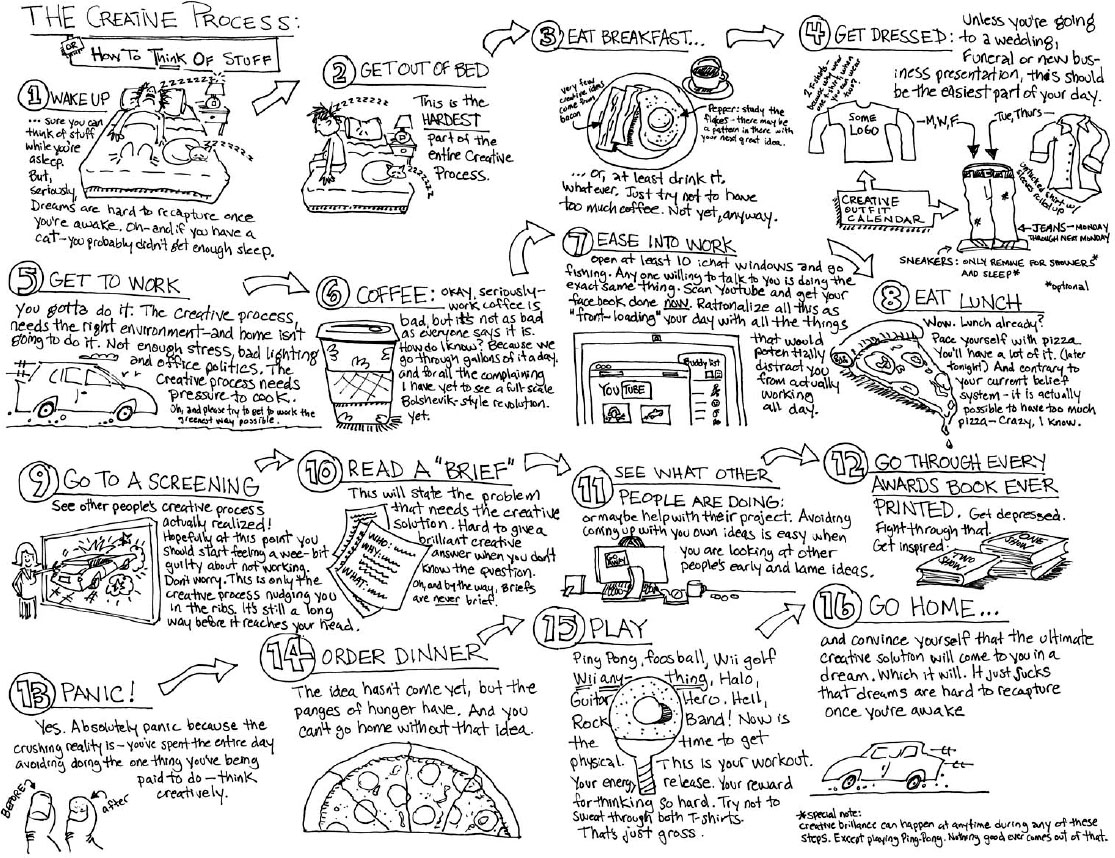 THE CREATIVE PROCESS:
OR
HOW TO THINK OF STUFF
1 WAKE UP
zzzzzzzz
zzzzzz
... sure you can
think of stuff
while you're
asleep.
But,
seriously,
Dreams are hard to recapture once
you're awake. Oh-and if you have a
cat-you probably didn't get enough sleep.
2 GET OUT OF BED
zzzzzzzz
zzzzzz
This is the
HARDEST
part of the
entire Creative
Process.
3 EAT BREAKFAST...
Very few
creative ideas
come from
bacon
Pepper: study the
flakes - there may be
a pattern in there with
your next great idea.
... or, at least drink it,
whatever. Just try not to have
too much coffee. Not yet, anyway.
4 GET DRESSED:
Unless you're going
to a wedding,
Funeral or new bus-
iness presentation, this should
be the easiest part of your day.
2 T-shirts-
SOME
LOGO
M,W,F
Tue, Thurs
Untucked shirt w/
sleeves rolled up
CREATIVE
OUTFIT
CALENDAR
JEANS-MONDAY
THROUGH NEXT MONDAY
SNEAKERS: ONLY REMOVE FOR SHOWERS*
AND SLEEP*
*optional
5 GET TO WORK
You gotta do it. The creative process,
needs the right environment-and home isn't
going to do it. Not enough stress, bad lighting
and office politics. The
Creative process needs
pressure to cook.
Oh, and please try to get to work the
greenest way possible.
6 COFFEE:
OKAY, seriously-
work coffee is
bad, but it's not as bad
as everyone says it is.
How do I know? Because we
go through gallons of it a day,
and for all the complaining
I have yet to see a full-scale
Bolshevik-style revolution.
yet.
7 EASE INTO WORK
open at least 10 ichat windows and go
fishing. Any one willing to talk to you is doing the
exact same thing. Scan YouTube and get your
facebook done now. Rationalize all this as
"front-loading" your day with all the things
that would
potentially
distract you
from actually
working
all day.
YOU TUBE
Buddy list
8 EAT LUNCH
Wow. Lunch already?
Pace yourself with pizza
You'll have a lot of it. (later
tonight) And contrary to
your current belief
system - it is actually
possible to have too much
pizza-Crazy, I know.
9 GO TO A SCREENING
See other people's creative process
actually realized!
Hopefully at this point you
should start feeling a wee-bit
guilty about not working.
Don't worry. This is only the
creative process nudging you
in the ribs. It's still a long
way before it reaches your head.
10 READ A "BRIEF"
This will state the problem
that needs the creative
solution. Hard to give a
brilliant creative
answer when you don't
know the question.
Oh, and by the way, Briefs
are never brief.
WHO:
WHY:
WHAT:
11 SEE WHAT OTHER
PEOPLE ARE DOING:
or maybe help with their project. Avoiding
coming up with you own ideas is easy when
you are looking at other
people's early and lame ideas.
12 GO THROUGH EVERY
AWARDS BOOK EVER
PRINTED.
Get depressed.
Fight through that.
Get inspired.
ONE
SHOW
TWO
SHOW
13 PANIC!
Yes. Absolutely panic because the
crushing reality is-you've spent the entire day
avoiding doing the one thing you've being
paid to do - think
creatively.
BEFORE
after
14 ORDER DINNER
The idea hasn't come yet, but the
panges of hunger have. And you
can't go home without that idea.
15 PLAY
Ping Pong, foosball, Wii golf
Wii any-thing, Halo,
Guitar Hero. Hell,
Rock Band! Now is
the time to get
physical. This is your workout.
Your energy release. Your reward
for thinking so hard. Try not to
sweat through both T-shirts.
That's just gross.
16 GO HOME...
and convince yourself that the ultimate
creative solution will come to you in a
dream. Which it will. It just sucks
that dreams are hard to recapture
once you're awake
*Special note:
creative brillance can happen at anytime during any of these
steps. Except playing Ping-Pong. Nothing good ever comes out of that.